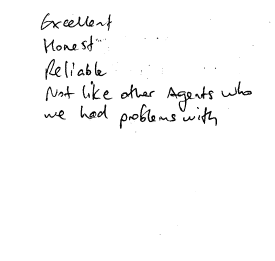 Excellent
Honest
Reliable
Not like other Agents who
we had problems with